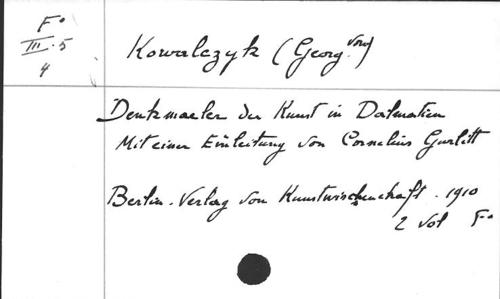 F°
III.5
4
Kowalczyk (Georg von)
Denkmaeler der Kunst in Dalmatien
Mit einer Einleitung von Cornelius Gurlitt
Berlin. Verlag von Kunstwissenschaft. 1910
2 vol F°